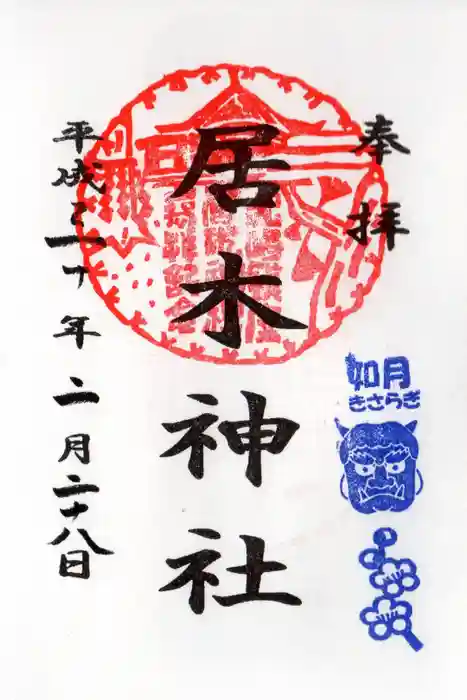 奉拝
居木神社
平成三十年二月二十八日
如月
きさらぎ